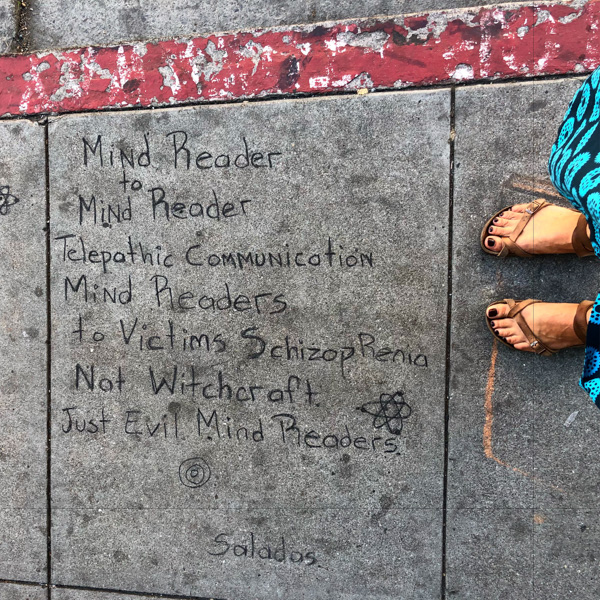 Mind Reader
to
Mind Reader
Telepathic Communication
Mind Readers
to Victims Schizophrenia
Not Witchcraft.
Just Evil Mind Readers.
©
Salados.